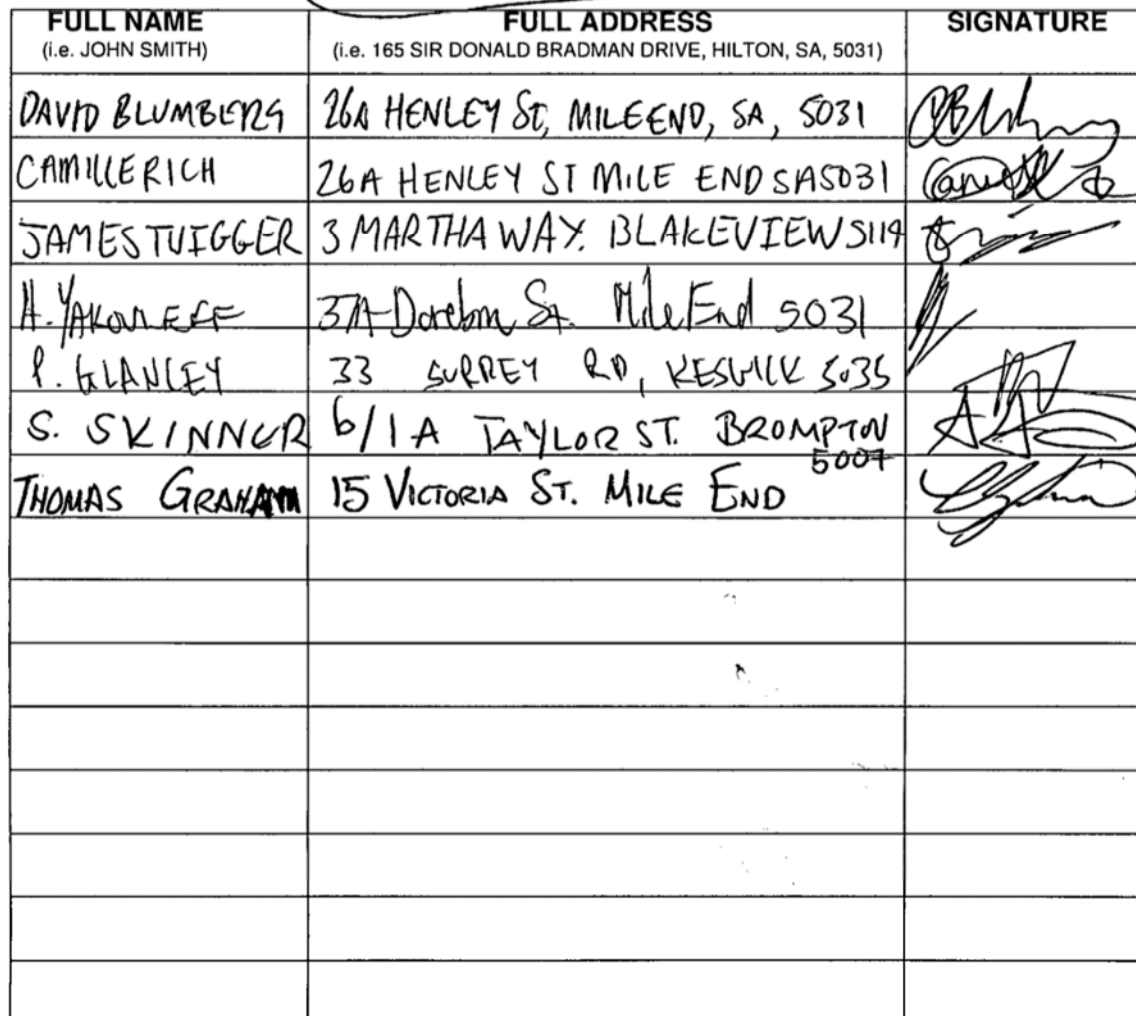 FULL NAME FULL ADDRESS SIGNATURE
(i.e. JOHN SMITH) (i.e. 165 SIR DONALD BRADMAN DRIVE, HILTON, SA, 5031)
DAVID BLUMBERG 26A HENLEY ST, MILE END, SA, 5031
CAMILLE RICH 26A HENLEY ST MILE END SA 5031
JAMES TUIGGER 3 MARTHA WAY. BLAKEVIEW 5114
H. YAKOVLEFF St. Mile End 5031
P. GLANCEY 33 SURREY RD, KESWICK 5035
S. SKINNER 6/1A TAYLOR ST. BROMPTON
5007
THOMAS GRAHAM 15 VICTORIA ST. MILE END